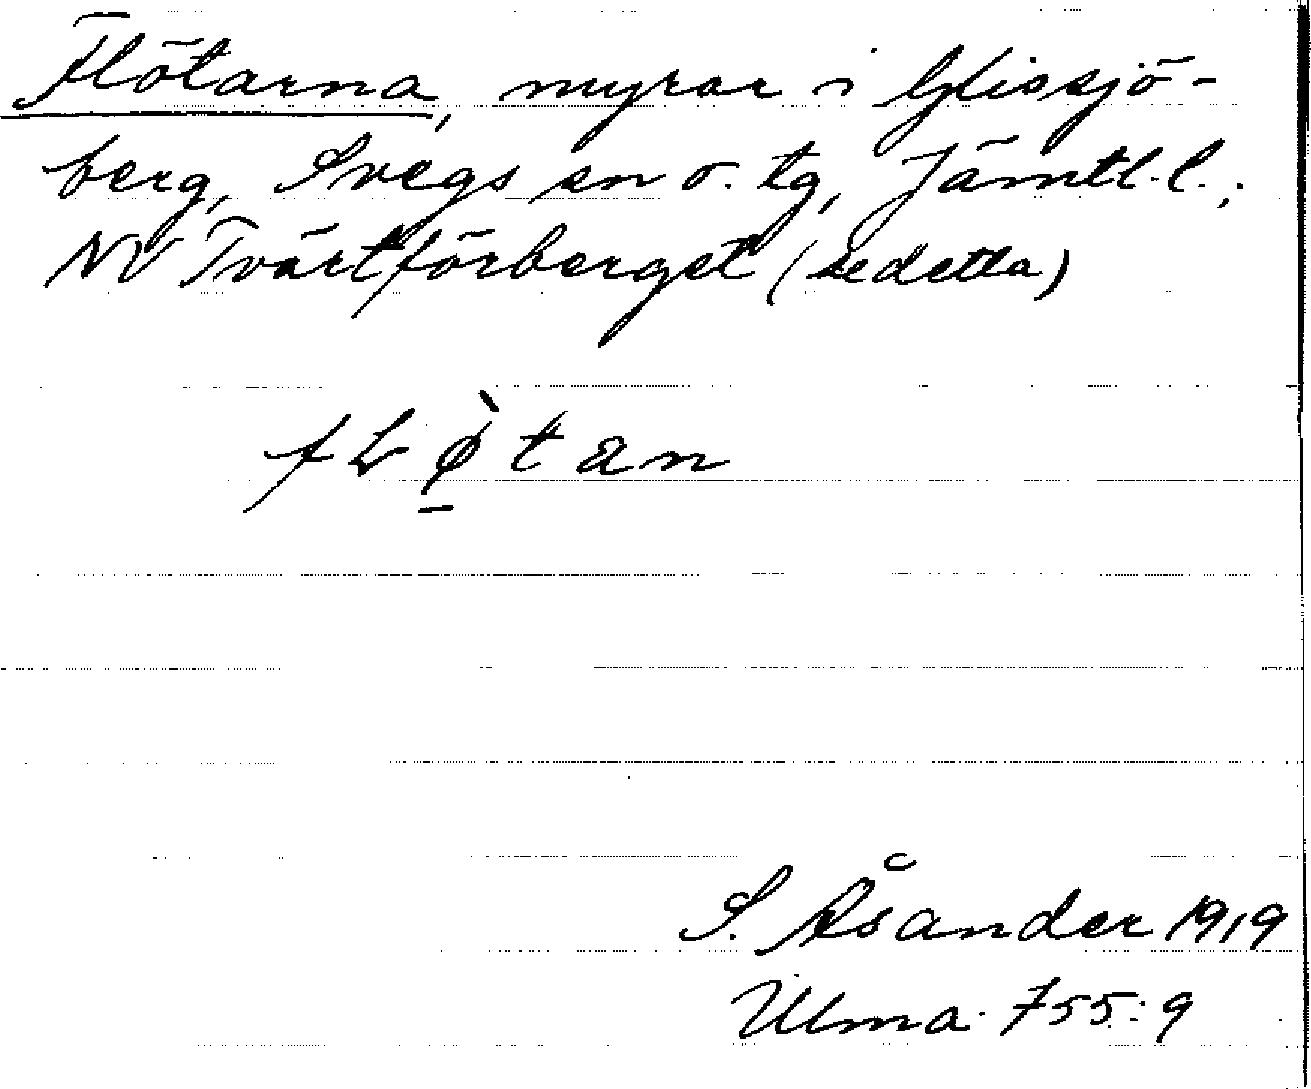 Flötarna, myrar i Glissjö-
berg, Svegs sn o. tg, Jämtl. l.;
NV Tvärtförberget (se detta)
fLø̠̀tan
S. Åsander 1919
Ulma 755:9